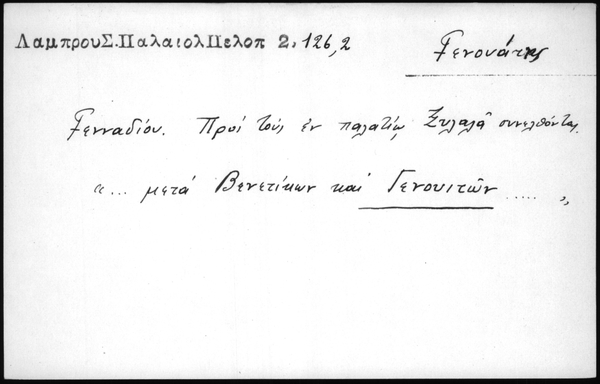 ΛαμπρουΣ.ΠαλαιολΠελοπ 2, 126,2
Γενουάτης
Γενναδίου. Πρός τούς ἐν παλατίῳ Ξυλαλᾶ συνελθόντας.
"... μετά Βενετίκων καί Γενουιτῶν ..... "